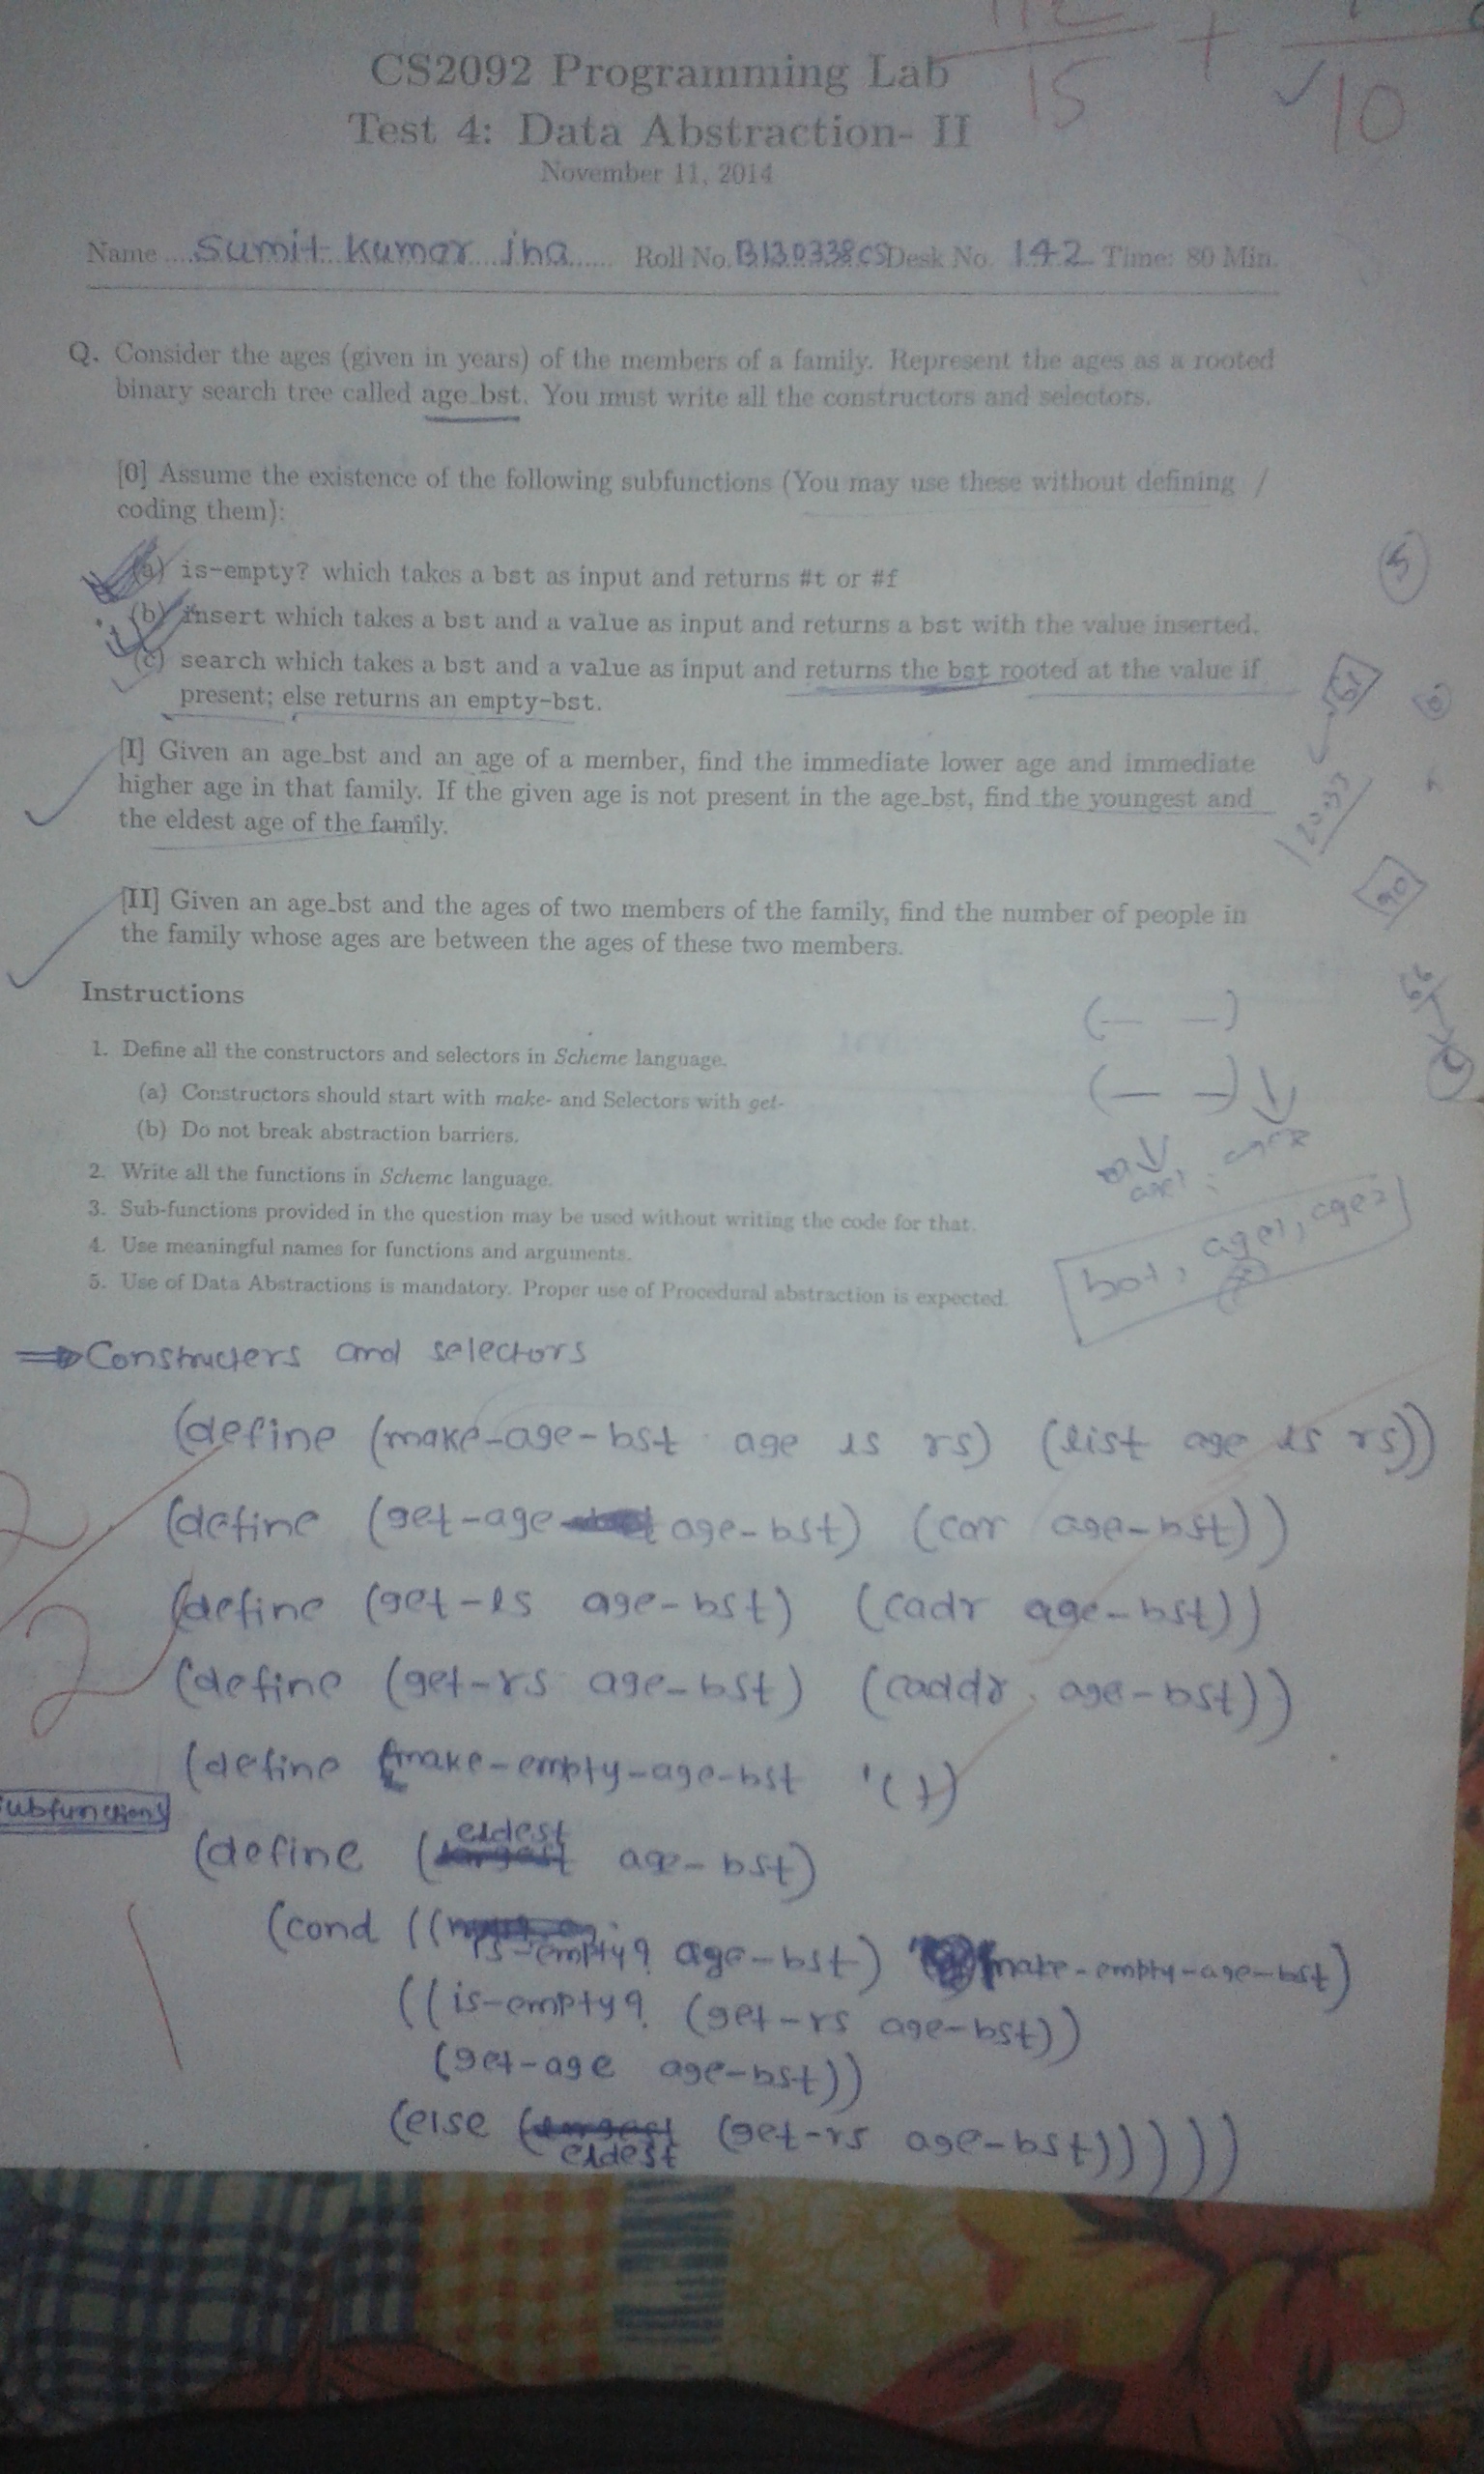 15 + 10
CS2092 Programming Lab
Test 4: Data Abstraction- II
November 11, 2014
Name .... Sumit Kumar Jha ...... Roll No. B130338CS Desk No. 142 Time: 80 Min.
Q. Consider the ages (given in years) of the members of a family. Represent the ages as a rooted
binary search tree called age_bst. You must write all the constructors and selectors.
[0] Assume the existence of the following subfunctions (You may use these without defining /
coding them):
(a) is-empty? which takes a bst as input and returns #t or #f
(b) insert which takes a bst and a value as input and returns a bst with the value inserted.
(c) search which takes a bst and a value as input and returns the bst rooted at the value if
present; else returns an empty-bst.
5
[I] Given an age_bst and an age of a member, find the immediate lower age and immediate
higher age in that family. If the given age is not present in the age_bst, find the youngest and
the eldest age of the family.
90
[II] Given an age_bst and the ages of two members of the family, find the number of people in
the family whose ages are between the ages of these two members.
Instructions
1. Define all the constructors and selectors in Scheme language.
(a) Constructors should start with make- and Selectors with get-
(b) Do not break abstraction barriers.
2. Write all the functions in Scheme language.
3. Sub-functions provided in the question may be used without writing the code for that.
4. Use meaningful names for functions and arguments.
5. Use of Data Abstractions is mandatory. Proper use of Procedural abstraction is expected.
bst, age1, age2
⇒ Constructers and selectors
(define (make-age-bst age ls rs) (list age ls rs))
(define (get-age age-bst) (car age-bst))
(define (get-ls age-bst) (cadr age-bst))
(define (get-rs age-bst) (caddr age-bst))
(define make-empty-age-bst '())
2
Subfunctions
(define (eldest age-bst)
(cond ((is-empty? age-bst) make-empty-age-bst)
((is-empty? (get-rs age-bst))
(get-age age-bst))
(else (eldest (get-rs age-bst)))))